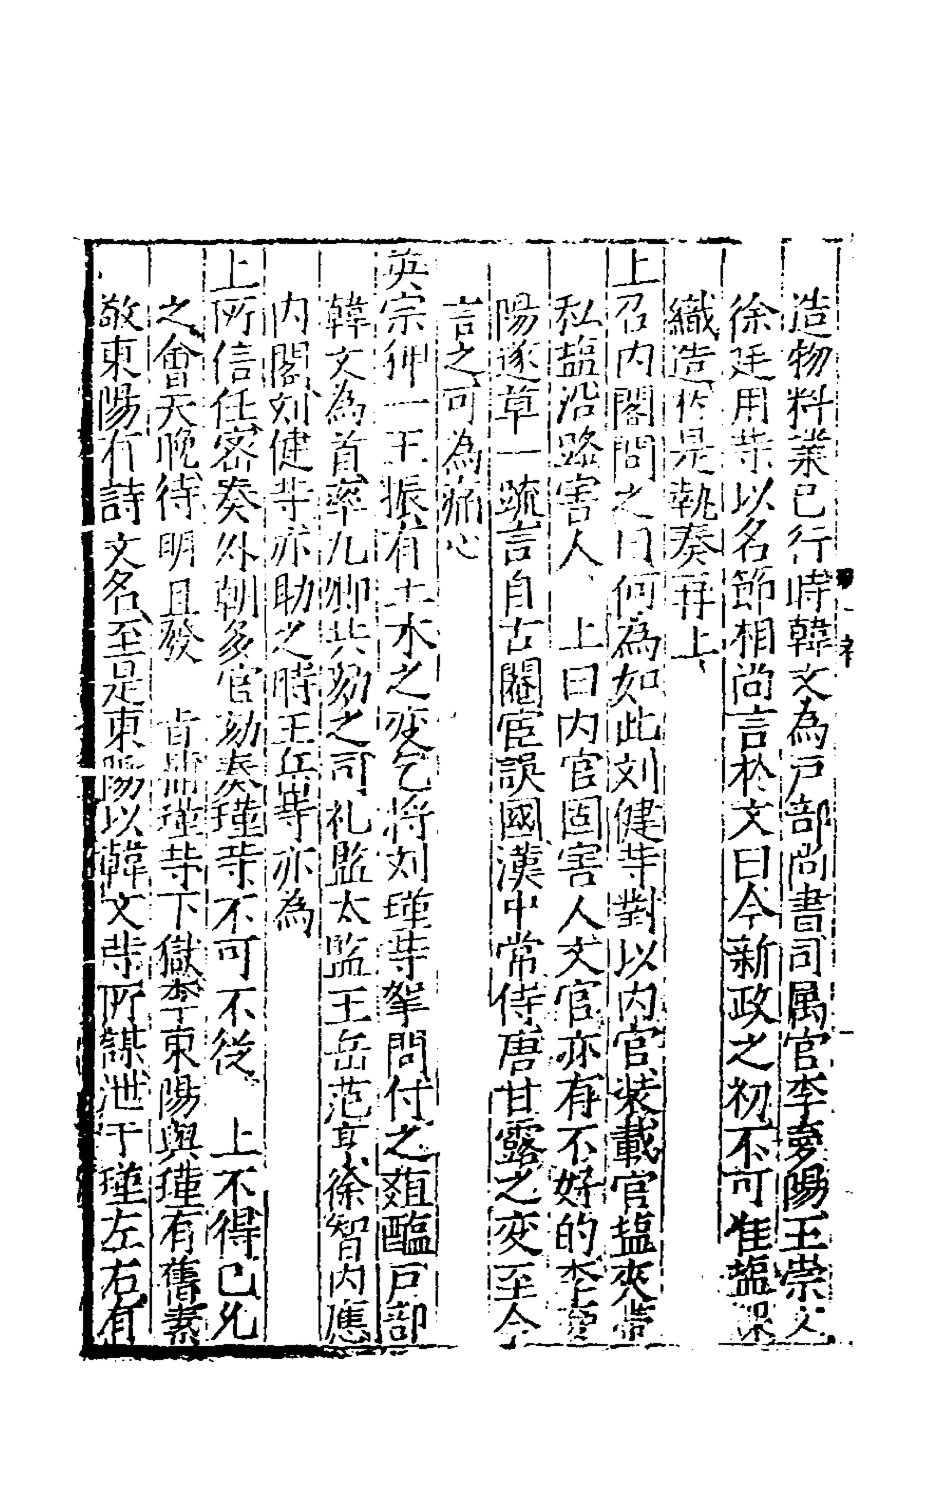 造物料業已行時韓文為戸部尚書司属官李夣陽王崇文
徐廷用䓁以名節相尚言於文曰今新政之初不可准塩課
織造於是執奏再上
上召内閣問之曰何為如此刘健䓁對以内官装載官塩夾帯
私塩沿路害人 上曰内官固害人文官亦有不好的李夣
陽遂草一疏言自古閹宦誤國漢中常侍唐甘露之变至今
言之可為痛心
英宗仲一王振有土木之变乞将刘瑾䓁拏問付之葅醢戸部
韓文為首率九卿共劾之司礼監太監王岳范亨徐智内應
内閣刘健䓁亦助之時王岳䓁亦為
上所信任密奏外朝多官劾奏瑾䓁不可不從 上不得已允
之會天晚待明旦發 㫖䓁下獄李東陽與瑾有舊素
敬東陽有詩文名至是東陽以韓文䓁所謀泄于瑾左右有